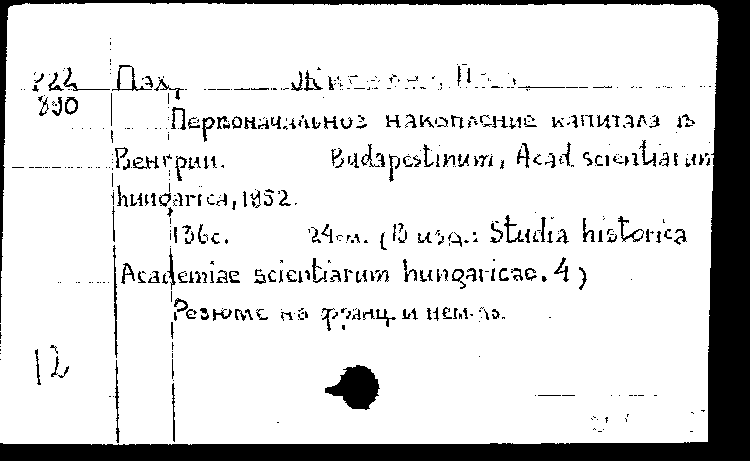 P22 Пах, Жигмонд Пал.
890
Первоначальное накопление капитала в
Венгрии. Budapestinum, Acad. scientiarum
hungarica, 1952.
136с. 24см. (В изд.: Studia historica
Academiae scientiarum hungaricae. 4)
Резюме на франц. и нем. яз.
12